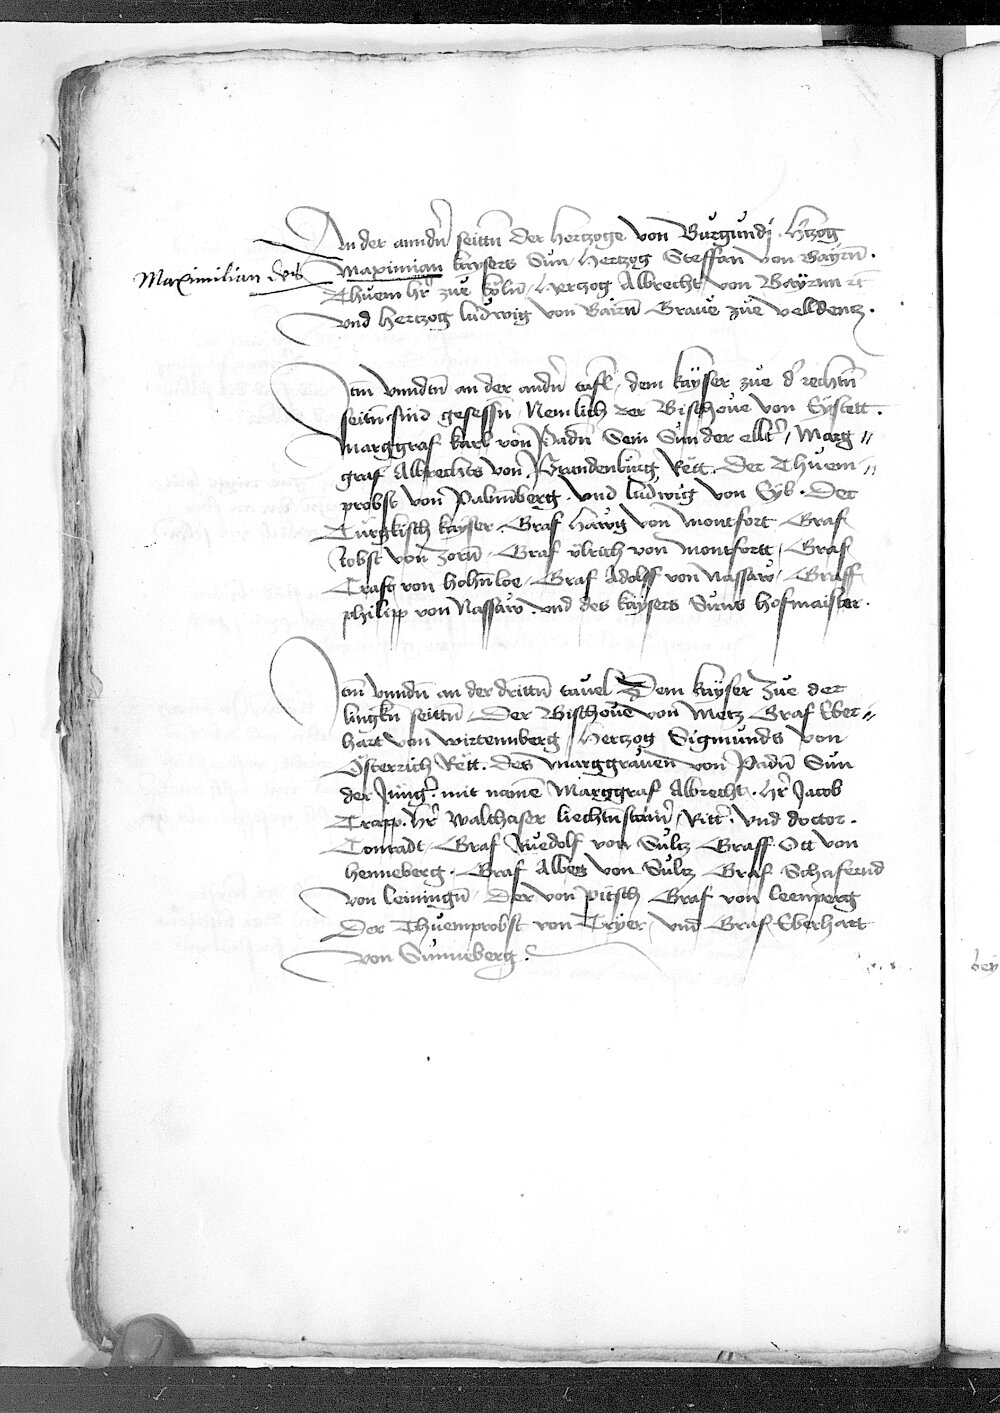 An der anndn̄ seittn̄ der hertzoge von Burgundj. Hertzog
Maximilian des
Maximian kaysers Sun / Hertzog Steffan von Bayrn̄.
Thuem hr̄ zue Köln̄ / Hertzog Albrecht von Bayrnn etc̄
vnd hertzog ludwig von Bairn̄ Graue zue velldentz.
Itm̄ vnndtn̄ an der andn̄ tafl / dem kayser zue d' rechtn̄
seitn̄ sind gesessn̄ / Nemlich der Bischoue von Eystett.
Marggraf karl von Padn̄ Sein Sun der ellt' / Marg //
graf Albrechts von Brandenburg Rett. Der Thuem //
probst von Pabmberg. vnd ludwig von Eyb. Der
Turgkisch kayser. Graf Hawg von montfort Graf
Jobst von Zorn̄ / Graf vlrich von montfortt / Graf
Crafft von hohn̄loe / Graf Adolff von Nassaw / Graff
philipp von Nassaw. vnd des kaysers Suns hofmaister.
Itm̄ vnndn̄ an der drittn̄ tauel Dem kayser zue der
lingkn̄ seittn̄ / Der Bischoue von Metz Graf Eber //
hart von wirtennberg / Hertzog Sigmunds von
Osterrich Rett. des marggrauen von Padn̄ Sun
der Jung' mit namē Marggraf Albrecht. Hr̄ Jacob
Trapp. Hr̄ walthaser liechtn̄stain' / Ritt'. vnd doctor.
Conradt / Graf Ruedolf von Sultz Graff Ott von
henneberg. Graf Alben von Sultz Graf Schafernd
von leiningn̄ / Der von pitsch Graf von leenperg
Der Thuemprobst von Tryer / vnd Graf Eberhart
von Sunneberg.